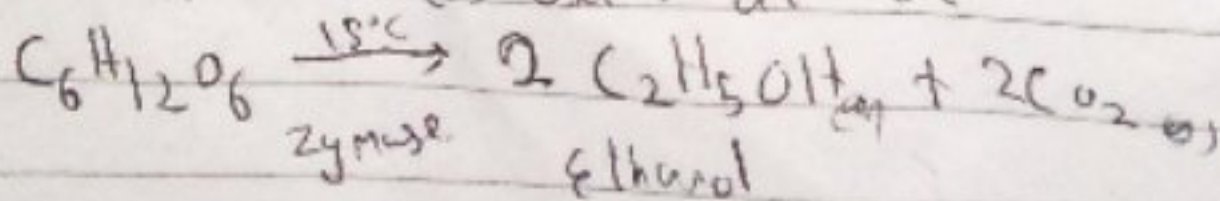 C₆H₁₂O₆ →[15°C][Zymase] 2 C₂H₅OH(aq) + 2CO₂(g)
Ethanol